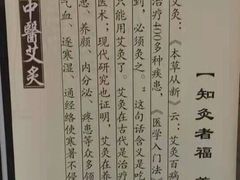 【知灸者福
艾灸:《本草从新》云:艾灸百病
治疗400多种疾患,《医学入门法
到,必须灸之。”这句话含义是吃
只能用艾灸了。艾灸在古代是治疗
医术;现代研究也证明,艾灸
患、养颜、内分泌、疼患等众多领
气血、逐寒湿、通经络使寒暑不侵
中醫艾灸